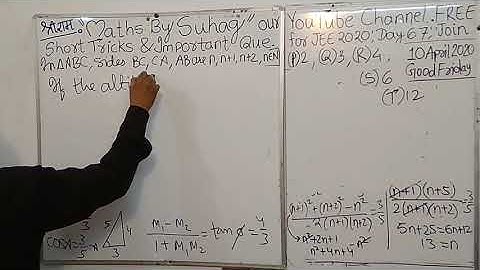 श्रीराम: "Maths By Suhag" our
Short Tricks & Important Que.
In ΔABC, Sides BC, CA, AB are n, n+1, n+2, n∈N
If the alt
YouTube Channel. FREE
for JEE 2020; Day 67; Join
(P)2, (Q)3, (R)4,
(S)6
(T)12
10 April 2020
Good Friday
cosA = 3/5
5 4
3
(M₁-M₂)/(1+M₁M₂) = tan = 4/3
((n+1)²+(n+2)²-n²)/(2(n+1)(n+2)) = 3/5
n²+2n+1
n²+4n+4-n²
((n+1)(n+5))/(2(n+1)(n+2)) = 3/5
5n+25=6n+12
13=n